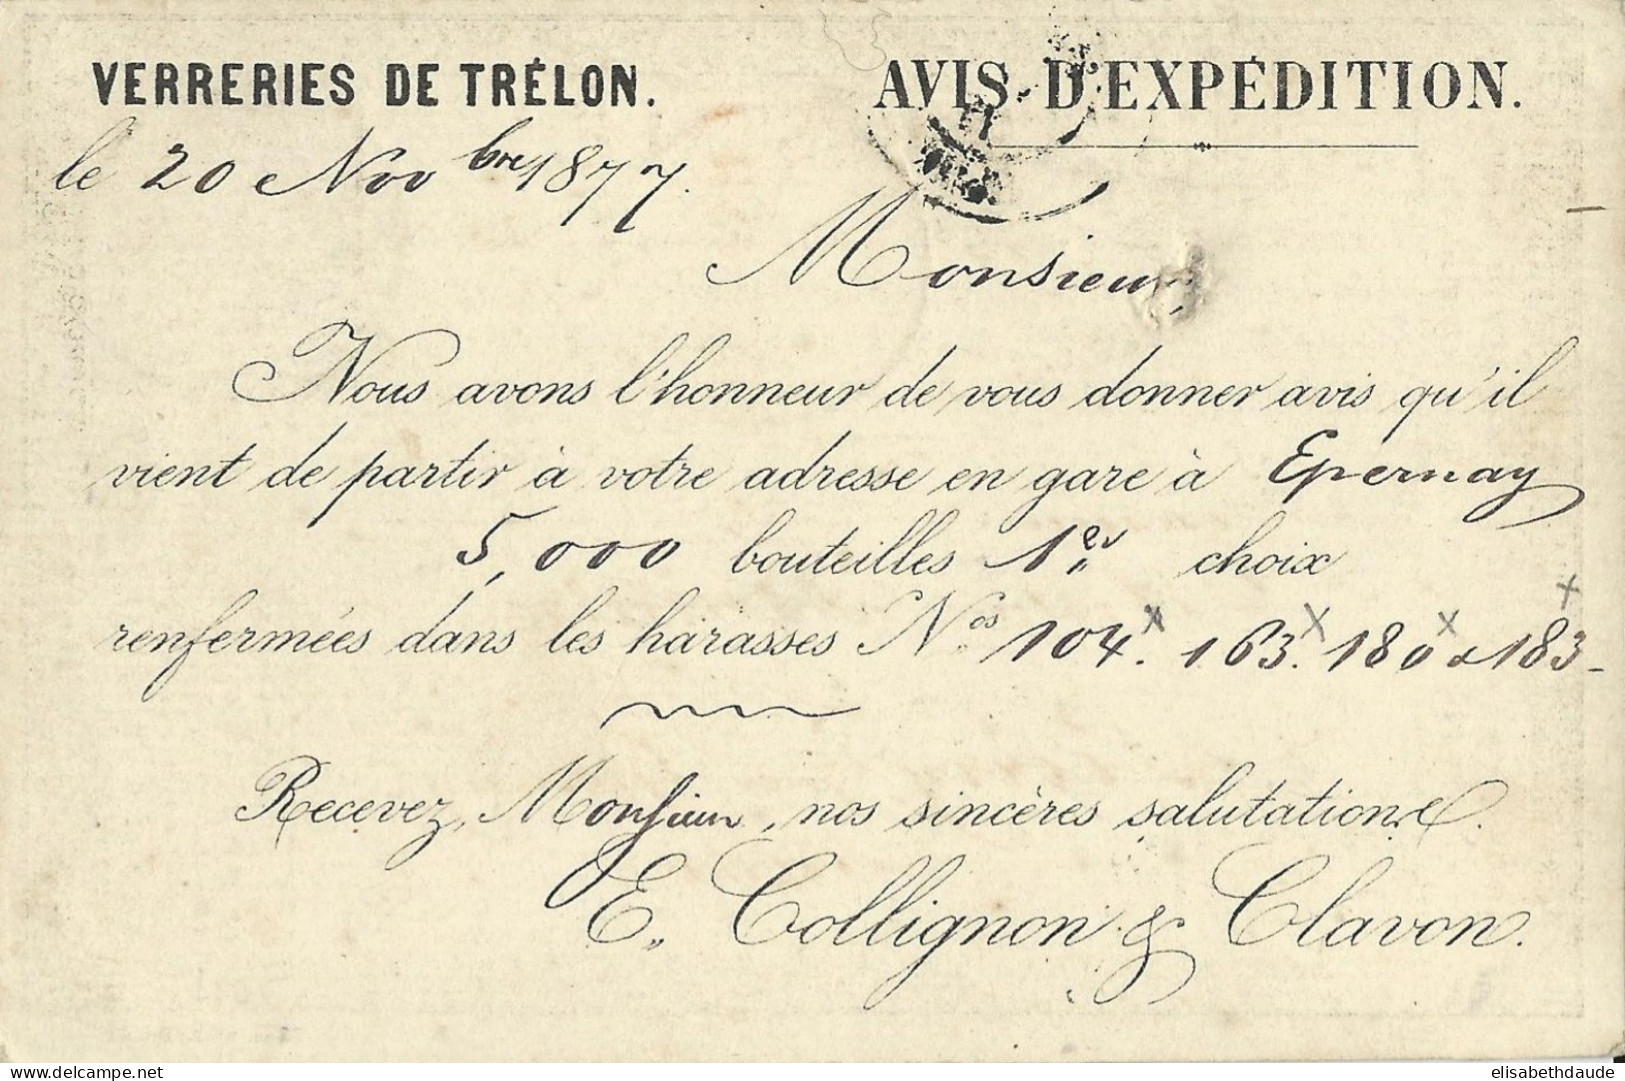 VERRERIES DE TRÉLON.
AVIS D'EXPÉDITION.
le 20 Nov bre 1877.
Monsieur
Nous avons l'honneur de vous donner avis qu'il
vient de partir à votre adresse en gare à Epernay
5,000 bouteilles 1er choix
renfermées dans les harasses Nos 104. 163. 180 & 183-
Recevez, Monsieur, nos sincères salutations.
E. Collignon & Clavon.
delcampe.net
elisabethdaude